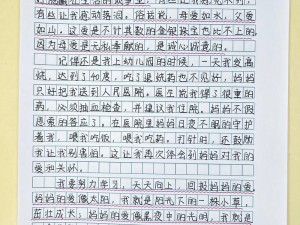 有些让我感动落泪。俗话说，母爱如水，父爱
如山。这爱是不计其数的金银珠宝也比不上的。
因为母爱是无私奉献的，是诚心诚意的。
记得那是我上幼儿园的时候，一天我发高
烧，达到了40度，吃了退烧药也不见好，妈妈
只好把我送到人民医院。医生说我得了很重的
病，必须抽血检查，并建议我住院。妈妈不假
思索的答应了。在医院里妈妈日夜不眠的守护
着我，喂我吃饭，喂我吃药。打针时，还鼓励
我让我别害怕。这让我再次体会到妈妈对我的
爱和关怀。
我要努力学习，天天向上，回报妈妈的爱
妈妈的爱像太阳，我就是阳光下的一株小草，
茁壮成长；妈妈的爱像黑夜中的光明，我就是